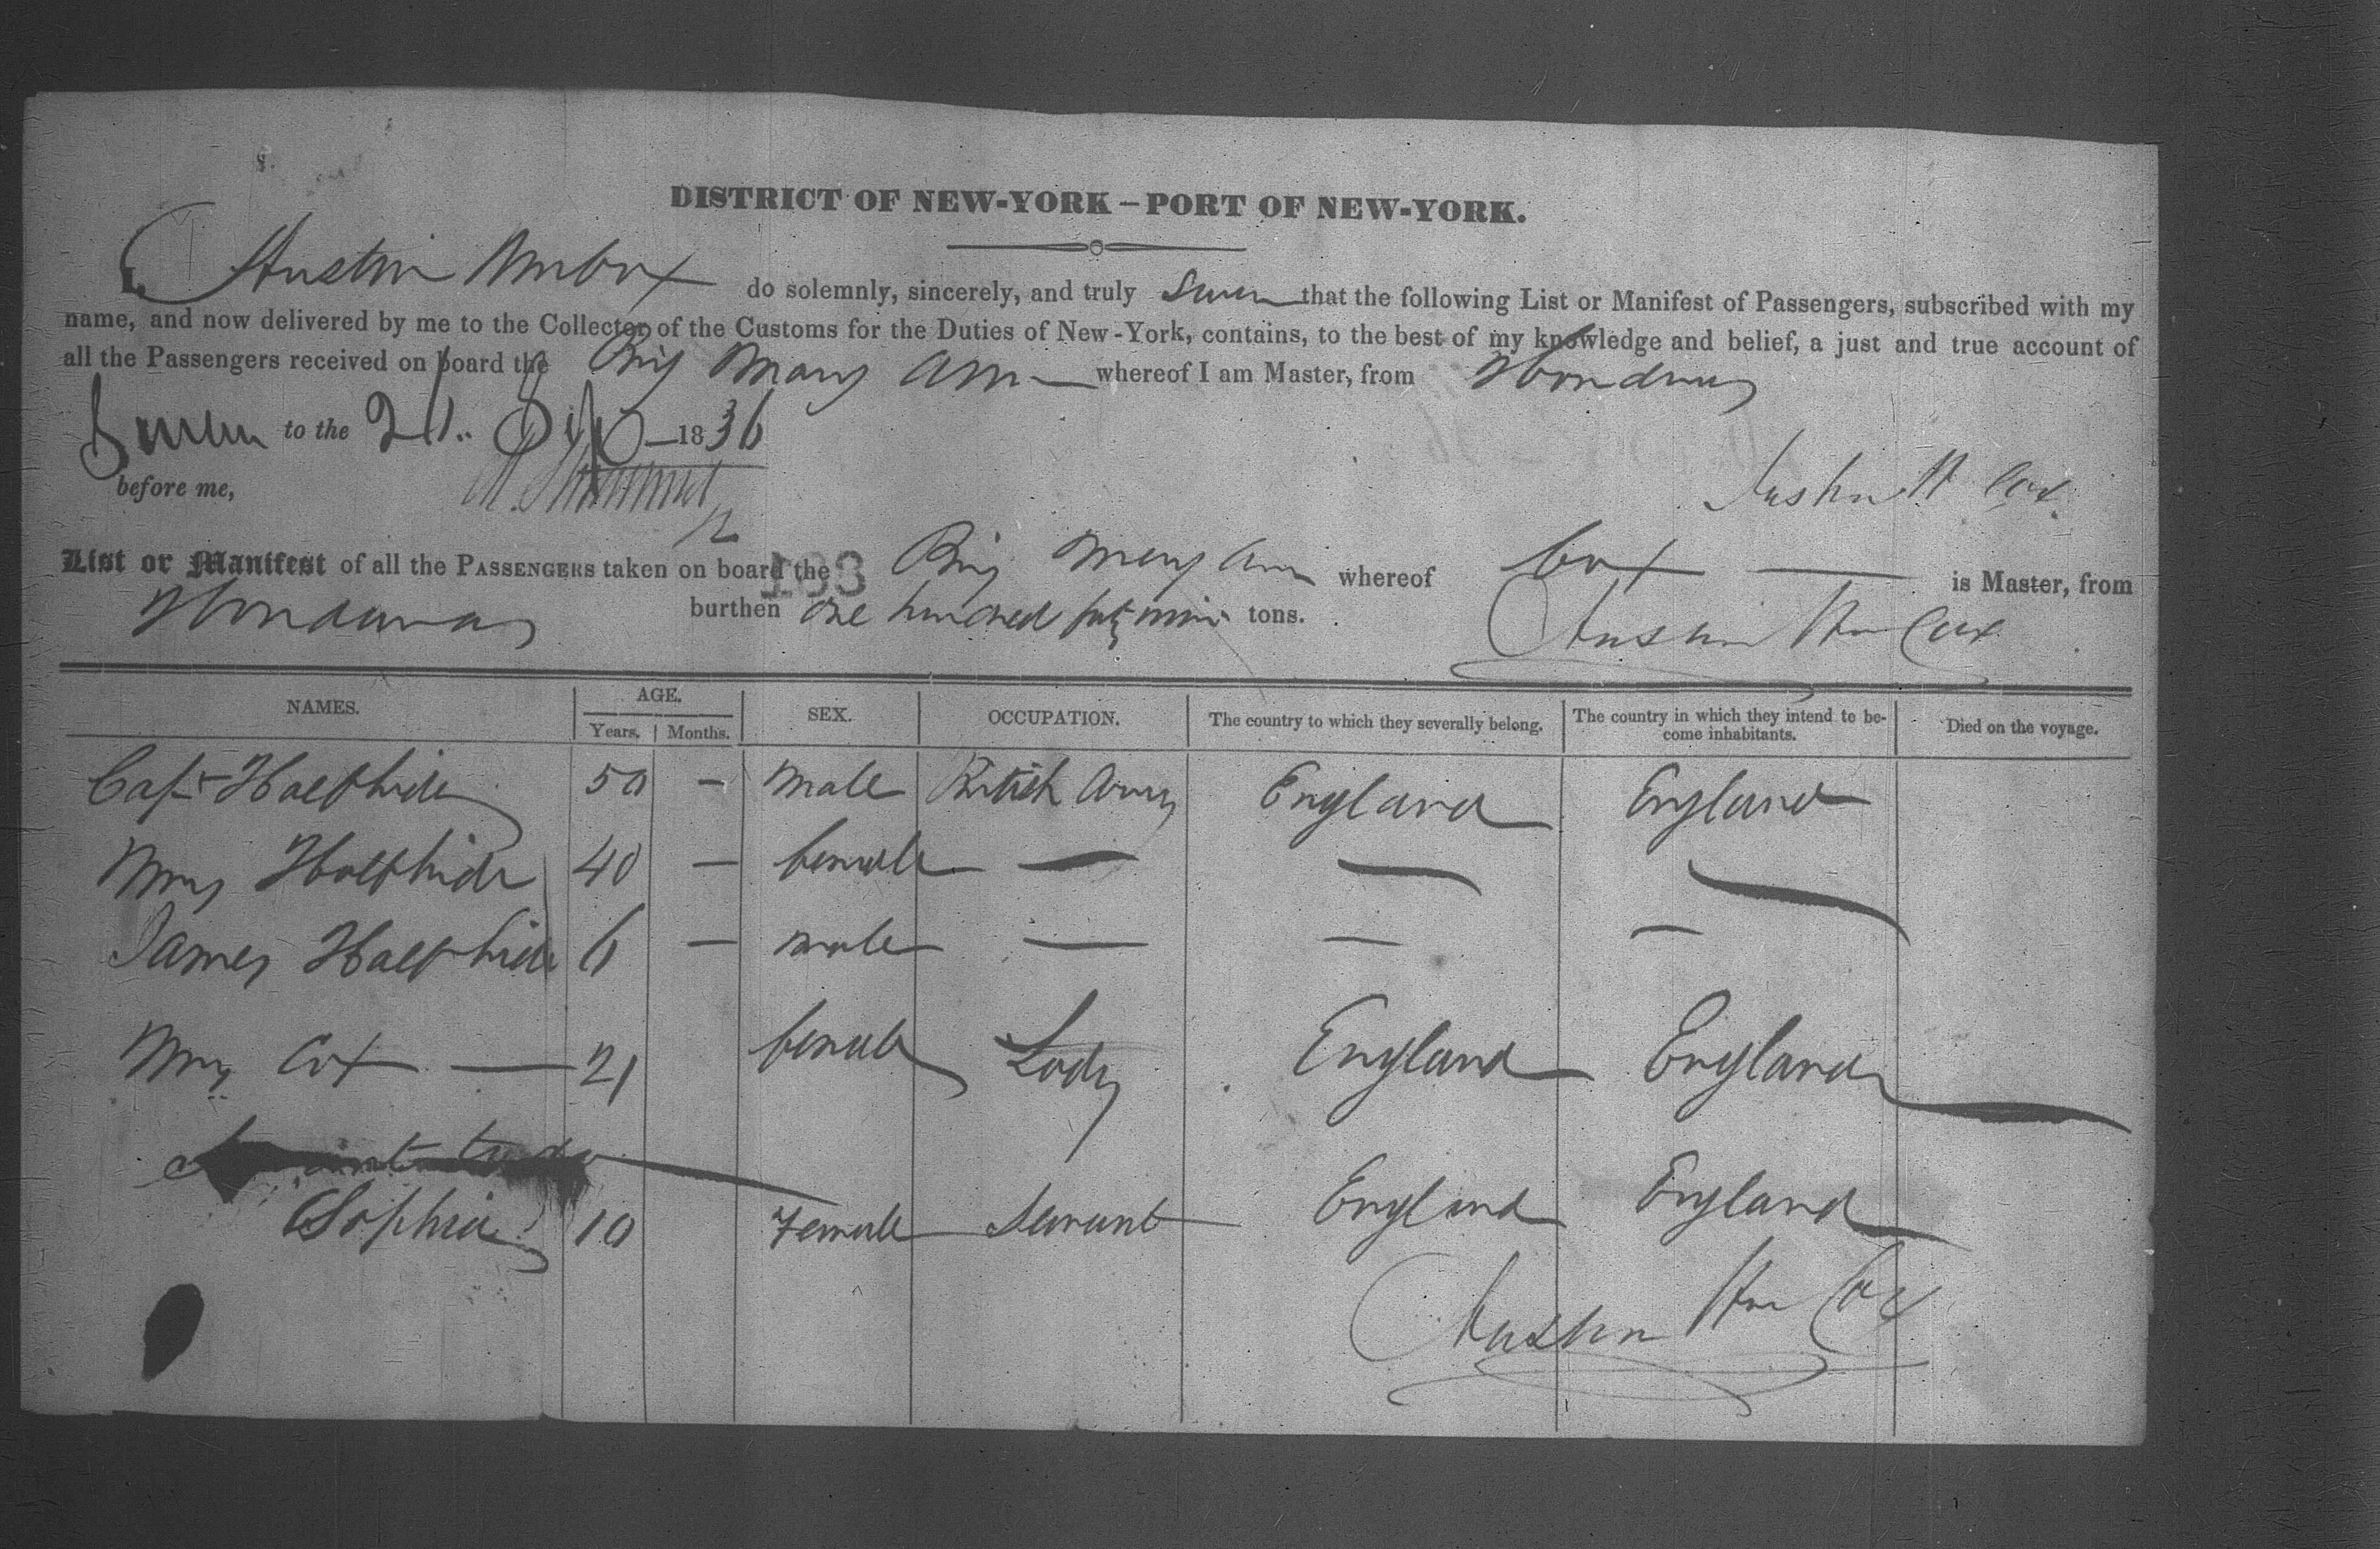 DISTRICT OF NEW-YORK – PORT OF NEW-YORK.
I, Austin Wm Cox do solemnly, sincerely, and truly swear that the following List or Manifest of Passengers, subscribed with my
name, and now delivered by me to the Collector of the Customs for the Duties of New-York, contains, to the best of my knowledge and belief, a just and true account of
all the Passengers received on board the Brig Mary Ann whereof I am Master, from Honduras
Sworn to the 21. Sept 1836
before me,
Austin W Cox
193
List or Manifest of all the PASSENGERS taken on board the Brig Mary Ann whereof Cox is Master, from
Honduras burthen One hundred forty nine tons.
Austin Wm Cox
NAMES. AGE. SEX. OCCUPATION. The country to which they severally belong. The country in which they intend to be-
come inhabitants. Died on the voyage.
Years. Months.
Capt Halfhide 50 – Male British Army England England
Mrs Halfhide 40 – female — — —
James Halfhide 6 – male — — —
Mrs Cox — 21 female Lady England England
Sophia 10 Female Servant England England
Austin Wm Cox